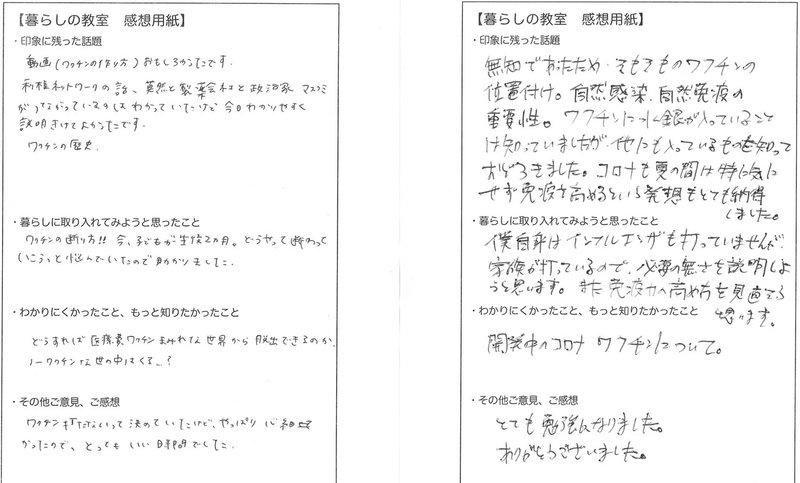 【暮らしの教室　感想用紙】
・印象に残った話題
動画(ワクチンの作り方)おもしろかったです。
利権ネットワークの話、莫然と製薬会社と政治家 マスコミ
がつながっているのはわかっていたけど今日わかりやすく
説明きけてよかったです。
ワクチンの歴史
・暮らしに取り入れてみようと思ったこと
ワクチンの断り方!! 今、子どもが生後2カ月。どうやって断わって
いこうっと悩んでいたので助かりました。
・わかりにくかったこと、もっと知りたかったこと
どうすれば医療費ワクチンまみれな世界から脱出できるのか、
ノーワクチンな世の中はくる…?
・その他ご意見、ご感想
ワクチン打たないって決めていたけど、やっぱり心細
かったので、とってもいい時間でした。
【暮らしの教室　感想用紙】
・印象に残った話題
無知であったため、そもそものワクチンの
位置付け。自然感染、自然免疫の
重要性。ワクチンに水銀が入っていること
は知っていましたが、他にも入っているものを知って
おどろきました。コロナも夏の間は特に気に
せず免疫を高めるという発想もとても納得
しました。
・暮らしに取り入れてみようと思ったこと
僕自身はインフルエンザも打っていませんが、
家族が打っているので、必要の無さを説明しよ
うと思います。また免疫力の高め方を見直そうと
思います。
・わかりにくかったこと、もっと知りたかったこと
開発中のコロナワクチンについて。
・その他ご意見、ご感想
とても勉強になりました。
ありがとうございました。